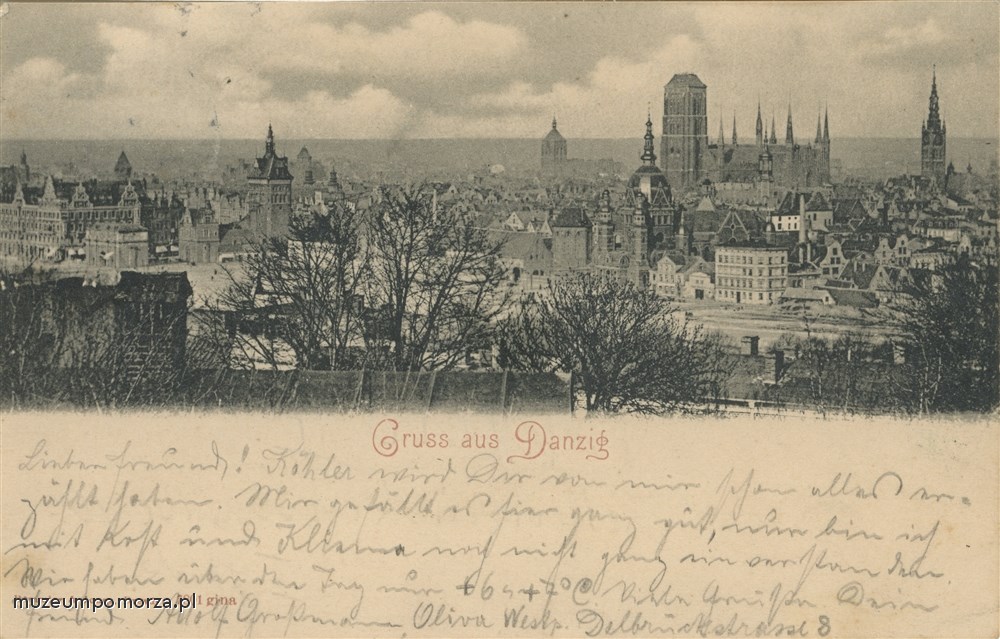 Gruss aus Danzig
Lieber Freund! Köhler wird Dir von mir schon alles er-
zählt haben. Mir gefällt es hier ganz gut, nur bin ich
mit Kost und Klima noch nicht ganz einverstanden.
Wir haben über den Tag nur +6 +7°C Viele Grüße Dein
Freund Adolf Großmann Oliva Westp. Delbrückstrasse 8
muzeumpomorza.pl